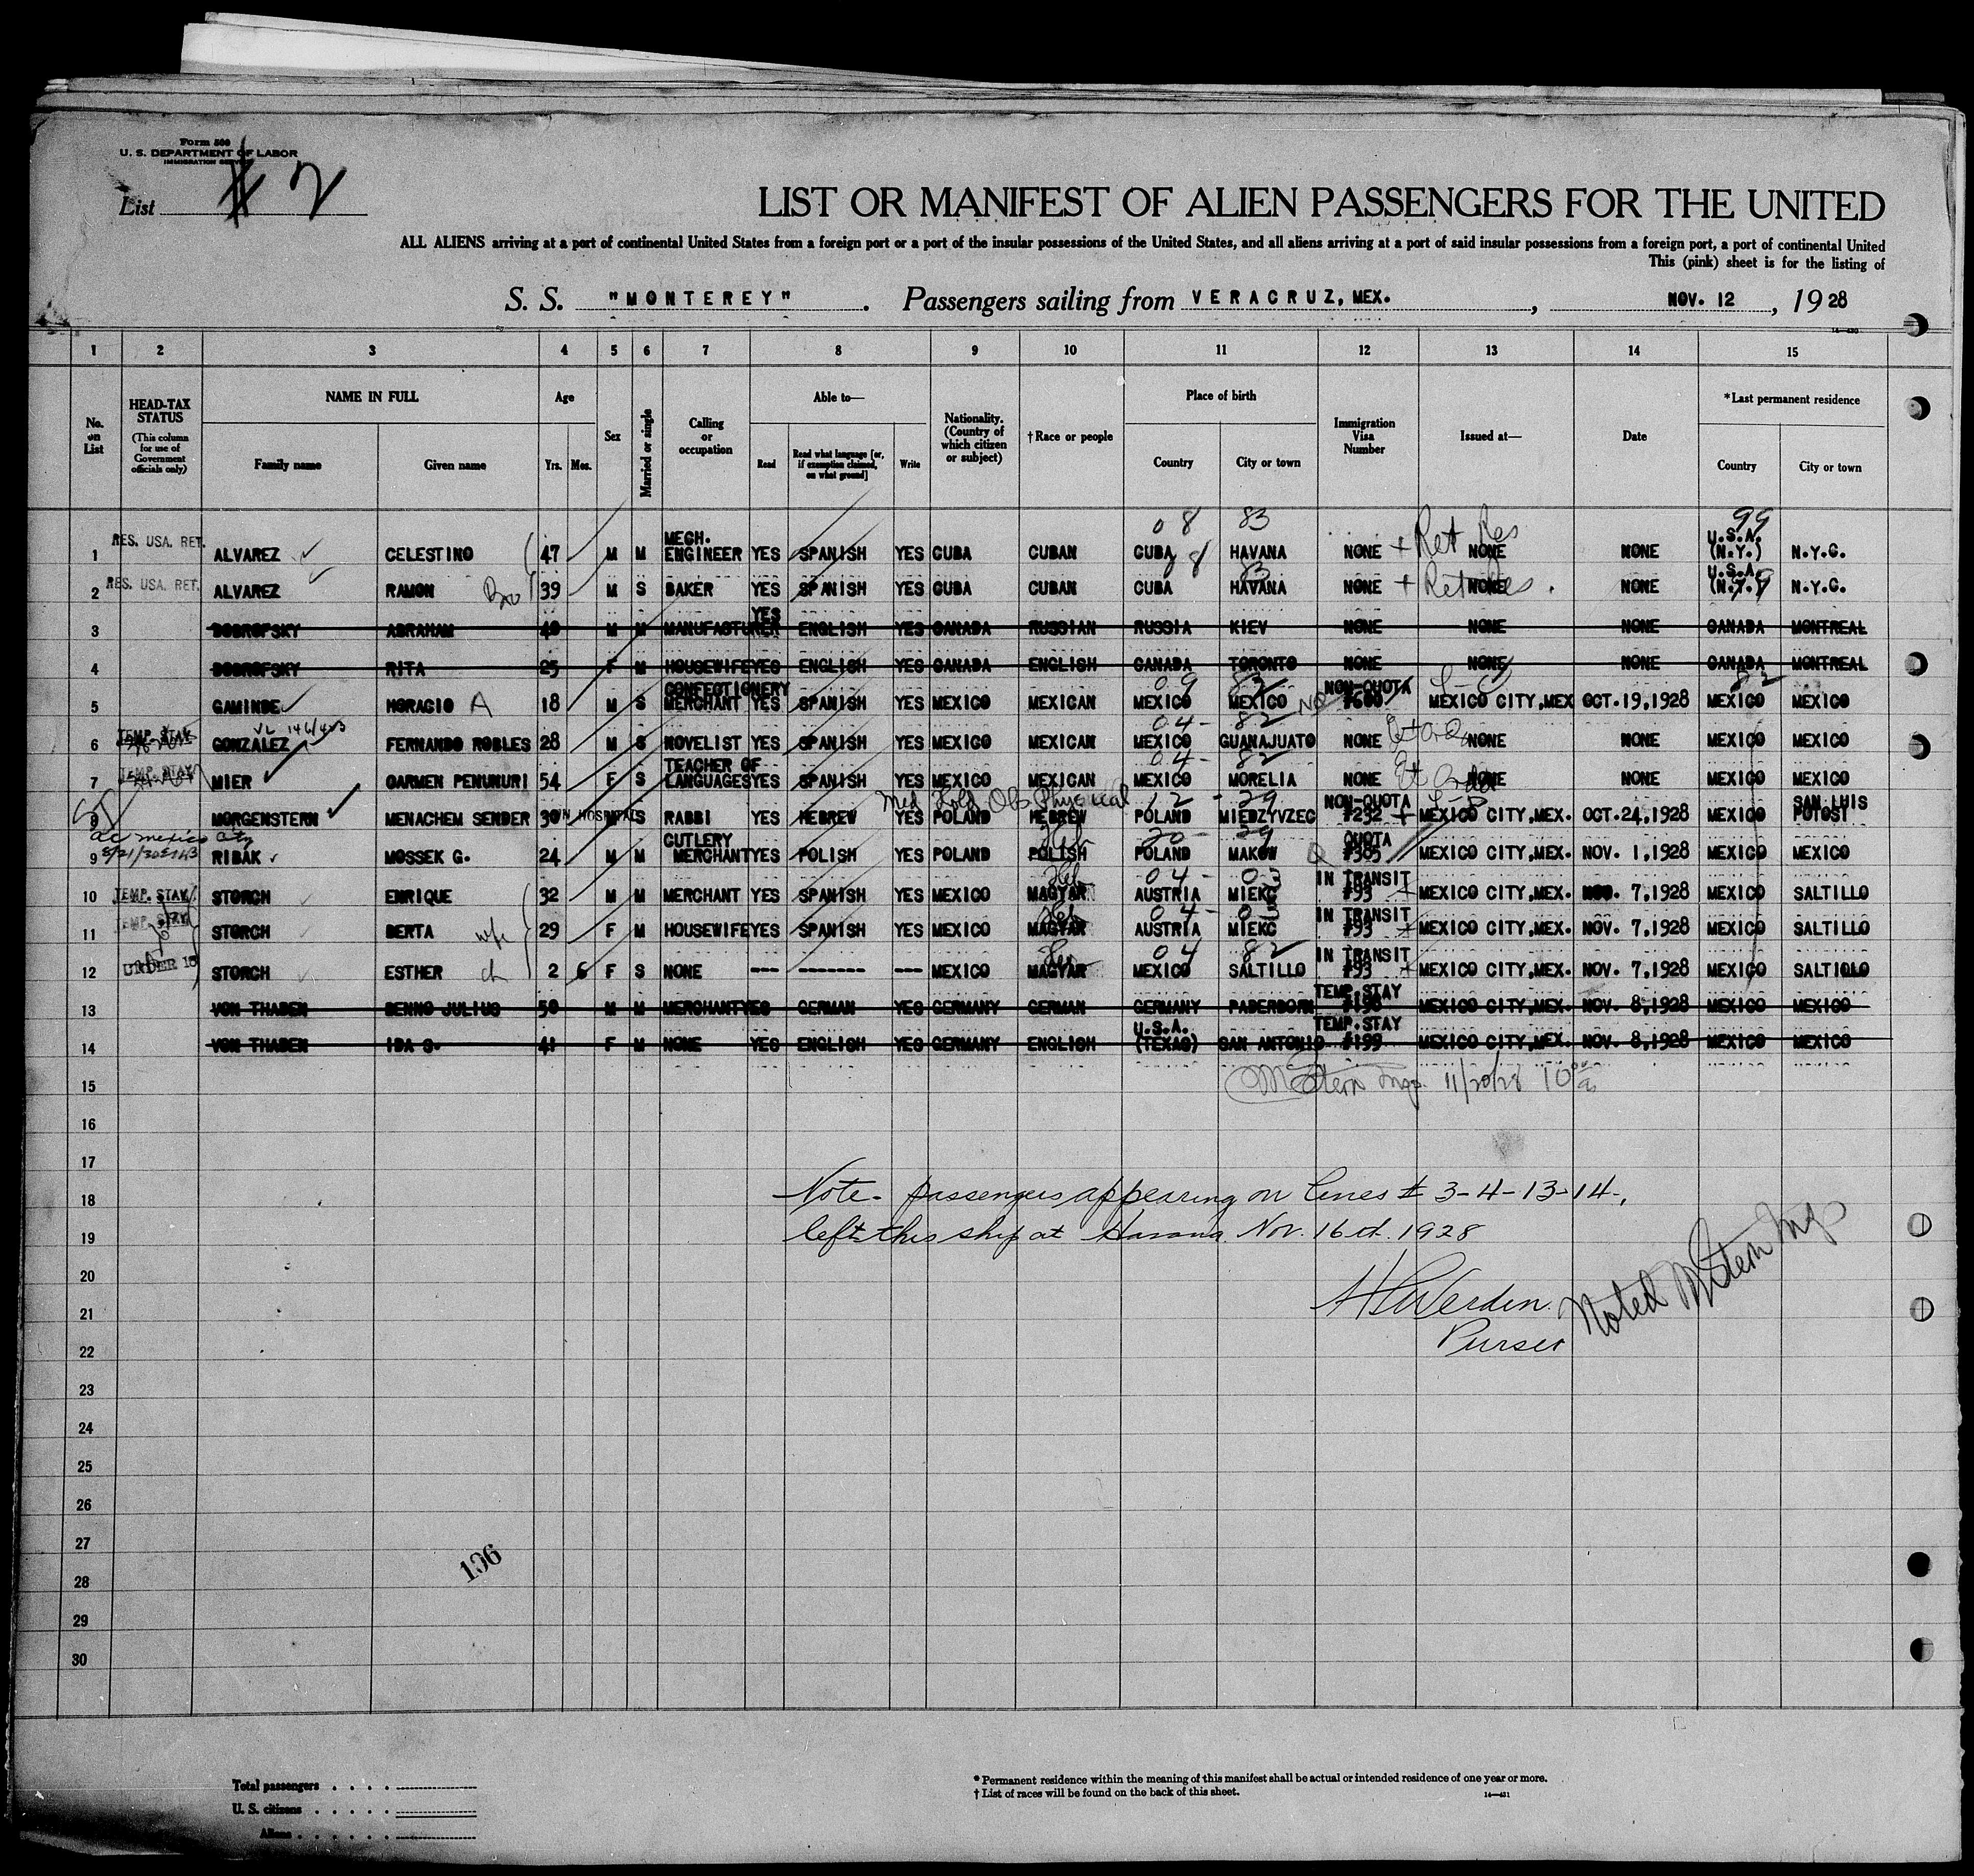 Form 500
U. S. DEPARTMENT OF LABOR
IMMIGRATION SERVICE
List # 2
LIST OR MANIFEST OF ALIEN PASSENGERS FOR THE UNITED
ALL ALIENS arriving at a port of continental United States from a foreign port or a port of the insular possessions of the United States, and all aliens arriving at a port of said insular possessions from a foreign port, a port of continental United
This (pink) sheet is for the listing of
S. S. "MONTEREY". Passengers sailing from VERACRUZ, MEX. , NOV. 12 , 1928
1 2 3 4 5 6 7 8 9 10 11 12 13 14 15
No. on List
HEAD-TAX STATUS (This column for use of Government officials only)
NAME IN FULL
Family name
Given name
Age
Yrs. Mos.
Sex
Married or single
Calling or occupation
Able to—
Read
Read what language [or, if exemption claimed, on what ground]
Write
Nationality. (Country of which citizen or subject)
† Race or people
Place of birth
Country
City or town
Immigration Visa Number
Issued at—
Date
*Last permanent residence
Country
City or town
08 83 99
1 RES. USA. RET. ALVAREZ CELESTINO 47 M M MECH. ENGINEER YES SPANISH YES CUBA CUBAN CUBA HAVANA NONE + Ret Res NONE NONE U.S.A. (N.Y.) N.Y.C.
2 RES. USA. RET. ALVAREZ RAMON Bro 39 M S BAKER YES SPANISH YES CUBA CUBAN CUBA HAVANA NONE + Ret Res NONE NONE U.S.A. (N.Y.) N.Y.C.
3 DOBROFSKY ABRAHAM 40 M M MANUFACTURER YES ENGLISH YES CANADA RUSSIAN RUSSIA KIEV NONE NONE NONE CANADA MONTREAL
4 DOBROFSKY RITA 25 F M HOUSEWIFE YES ENGLISH YES CANADA ENGLISH CANADA TORONTO NONE NONE NONE CANADA MONTREAL
5 GAMINDE HORACIO A 18 M S CONFECTIONERY MERCHANT YES SPANISH YES MEXICO MEXICAN MEXICO MEXICO NQ NON-QUOTA #600 MEXICO CITY, MEX OCT. 19, 1928 MEXICO MEXICO
6 TEMP. STAY GONZALEZ FERNANDO ROBLES 28 M S NOVELIST YES SPANISH YES MEXICO MEXICAN MEXICO GUANAJUATO NONE NONE NONE MEXICO MEXICO
7 TEMP. STAY MIER CARMEN PENUNURI 54 F S TEACHER OF LANGUAGES YES SPANISH YES MEXICO MEXICAN MEXICO MORELIA NONE NONE NONE MEXICO MEXICO
Med Hold Obs Physical 12 - 29
8 MORGENSTERN MENACHEM SENDER 30 IN HOSPITAL S RABBI YES HEBREW YES POLAND HEBREW POLAND MIEDZYVZEC NON-QUOTA #232 + MEXICO CITY, MEX. OCT. 24, 1928 MEXICO SAN LUIS POTOSI
9 RIBAK MOSSEK G. 24 M M CUTLERY MERCHANT YES POLISH YES POLAND POLISH Heb POLAND MAKOW Q QUOTA #305 MEXICO CITY, MEX. NOV. 1, 1928 MEXICO MEXICO
10 TEMP. STAY STORCH ENRIQUE 32 M M MERCHANT YES SPANISH YES MEXICO MAGYAR Heb AUSTRIA MIEKC IN TRANSIT #93 MEXICO CITY, MEX. NOV. 7, 1928 MEXICO SALTILLO
11 TEMP. STAY STORCH BERTA wife 29 F M HOUSEWIFE YES SPANISH YES MEXICO MAGYAR Heb AUSTRIA MIEKC IN TRANSIT #93 MEXICO CITY, MEX. NOV. 7, 1928 MEXICO SALTILLO
12 UNDER 16 STORCH ESTHER ch 2 6 F S NONE --- ------- --- MEXICO MAGYAR Heb MEXICO SALTILLO IN TRANSIT #93 MEXICO CITY, MEX. NOV. 7, 1928 MEXICO SALTIOLO
13 VON THADEN BENNO JULIUS 50 M M MERCHANT YES GERMAN YES GERMANY GERMAN GERMANY PADERBORN TEMP. STAY #198 MEXICO CITY, MEX. NOV. 8, 1928 MEXICO MEXICO
14 VON THADEN IDA S. 41 F M NONE YES ENGLISH YES GERMANY ENGLISH U.S.A. (TEXAS) SAN ANTONIO TEMP. STAY #199 MEXICO CITY, MEX. NOV. 8, 1928 MEXICO MEXICO
15 11/20/28 10
16
17
18 Note - passengers appearing on lines # 3-4-13-14-,
19 left this ship at Havana Nov. 16th. 1928
20
21 Noted
22 Purser
23
24
25
26
27 196
28
29
30
Total passengers
U. S. citizens
Aliens
* Permanent residence within the meaning of this manifest shall be actual or intended residence of one year or more.
† List of races will be found on the back of this sheet.
14—431